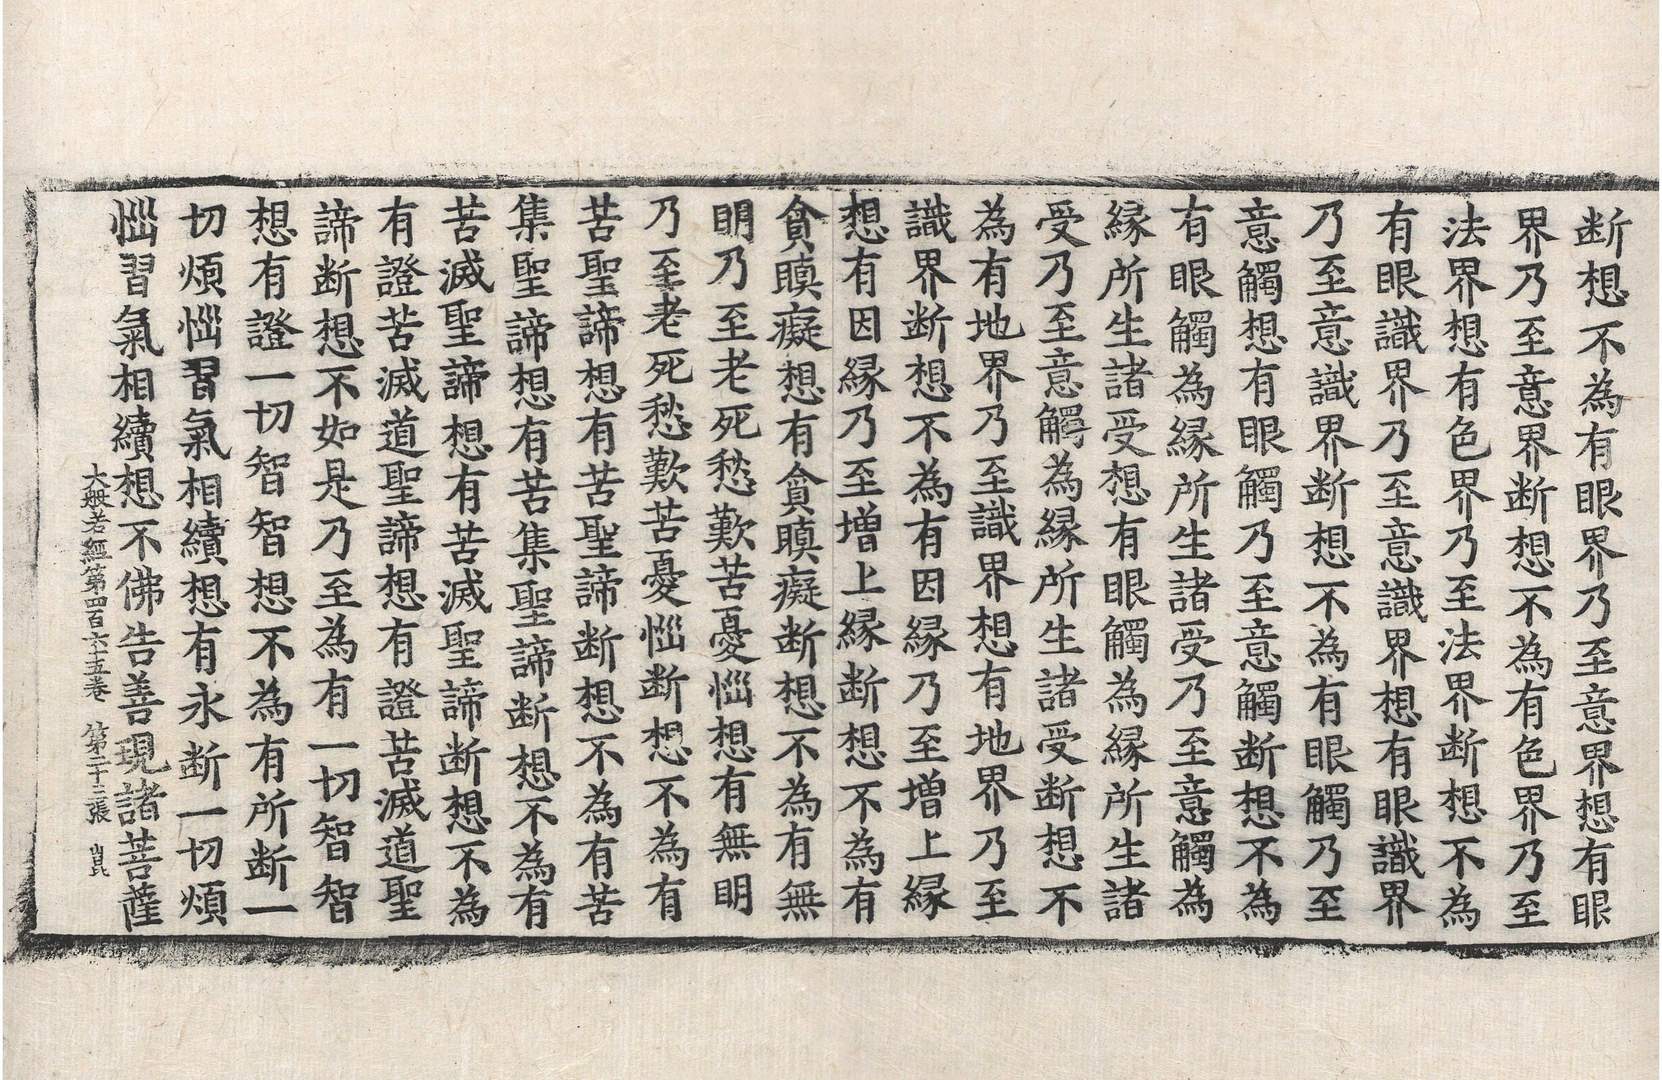 断想不為有眼界乃至意界想有眼
界乃至意界断想不為有色界乃至
法界想有色界乃至法界断想不為
有眼識界乃至意識界想有眼識界
乃至意識界断想不為有眼觸乃至
意觸想有眼觸乃至意觸断想不為
有眼觸為縁所生諸受乃至意觸為
縁所生諸受想有眼觸為縁所生諸
受乃至意觸為縁所生諸受断想不
為有地界乃至識界想有地界乃至
識界断想不為有因縁乃至增上縁
想有因縁乃至增上縁断想不為有
貪瞋癡想有貪瞋癡断想不為有無
明乃至老死愁歎苦憂惱想有無明
乃至老死愁歎苦憂惱断想不為有
苦聖諦想有苦聖諦断想不為有苦
集聖諦想有苦集聖諦断想不為有
苦滅聖諦想有苦滅聖諦断想不為
有證苦滅道聖諦想有證苦滅道聖
諦断想不如是乃至為有一切智智
想有證一切智智想不為有所断一
切煩惱習氣相續想有永断一切煩
惱習氣相續想不佛告善現諸菩薩
大般若經第四百六十五卷 第二十三張 崑